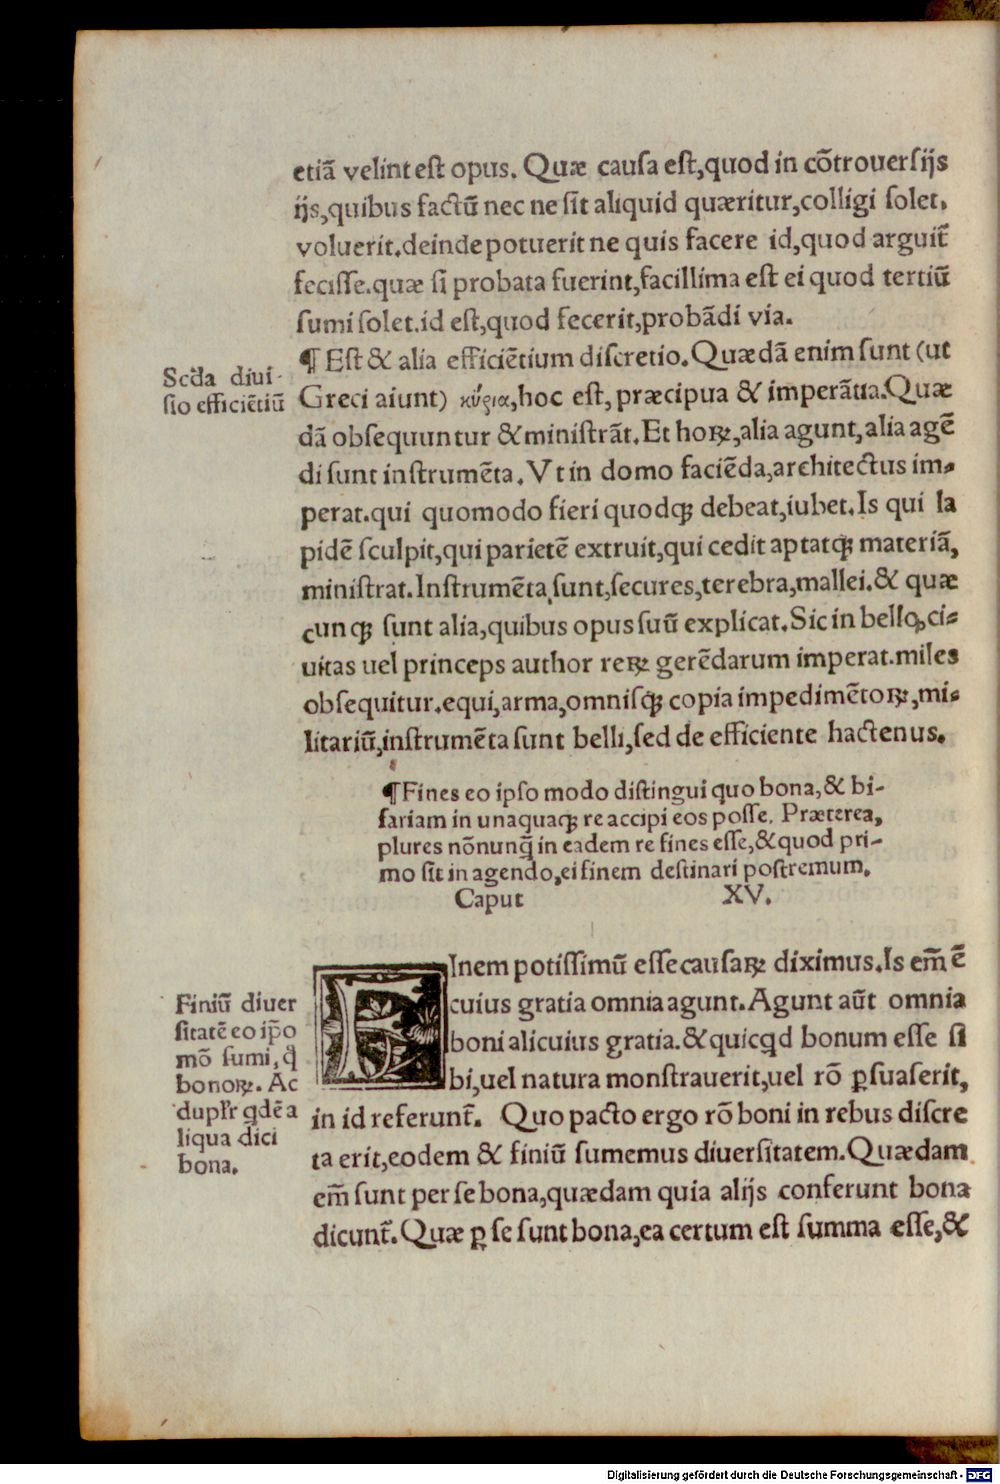 etiã velint est opus. Quæ causa est, quod in cõtrouersijs
ijs, quibus factũ nec ne sit aliquid quæritur, colligi solet.
voluerit. deinde potuerit ne quis facere id, quod arguit̃
fecisse. quæ si probata fuerint, facillima est ei quod tertiũ
sumi solet. id est, quod fecerit, probãdi via.
¶ Est & alia efficiẽtium discretio. Quædã enim sunt (ut
Scd̃a diui-
sio efficiẽtiũ
Greci aiunt) κύρια, hoc est, præcipua & imperãtia. Quæ
dã obsequuntur & ministrãt. Et hoꝝ, alia agunt, alia agẽ
di sunt instrumẽta. Vt in domo faciẽda, architectus im-
perat. qui quomodo fieri quodqꝫ debeat, iubet. Is qui la
pidẽ sculpit, qui parietẽ extruit, qui cedit aptatqꝫ materiã,
ministrat. Instrumẽta sunt, secures, terebra, mallei. & quæ
cunqꝫ sunt alia, quibus opus suũ explicat. Sic in bello, ci-
uitas uel princeps author reꝝ gerẽdarum imperat. miles
obsequitur. equi, arma, omnisqꝫ copia impedimẽtoꝝ, mi-
litariũ, instrumẽta sunt belli, sed de efficiente hactenus.
¶ Fines eo ipso modo distingui quo bona, & bi-
fariam in unaquaqꝫ re accipi eos posse. Præterea,
plures nõnunq̃ in eadem re fines esse, & quod pri-
mo sit in agendo, ei finem destinari postremum.
Caput XV.
FInem potissimũ esse causaꝝ diximus. Is em̃ ẽ
cuius gratia omnia agunt. Agunt aũt omnia
boni alicuius gratia. & quicqd bonum esse si
bi, uel natura monstrauerit, uel rõ ꝑsuaserit,
in id referunt̃. Quo pacto ergo rõ boni in rebus discre
ta erit, eodem & finiũ sumemus diuersitatem. Quædam
em̃ sunt per se bona, quædam quia alijs conferunt bona
dicunt̃. Quæ ꝑ se sunt bona, ea certum est summa esse, &
Finiũ diuer
sitatẽ eo ip̃o
mõ sumi, q̃
bonoꝝ. Ac
duplr̃ qdẽ a
liqua dici
bona.
Digitalisierung gefördert durch die Deutsche Forschungsgemeinschaft - DFG